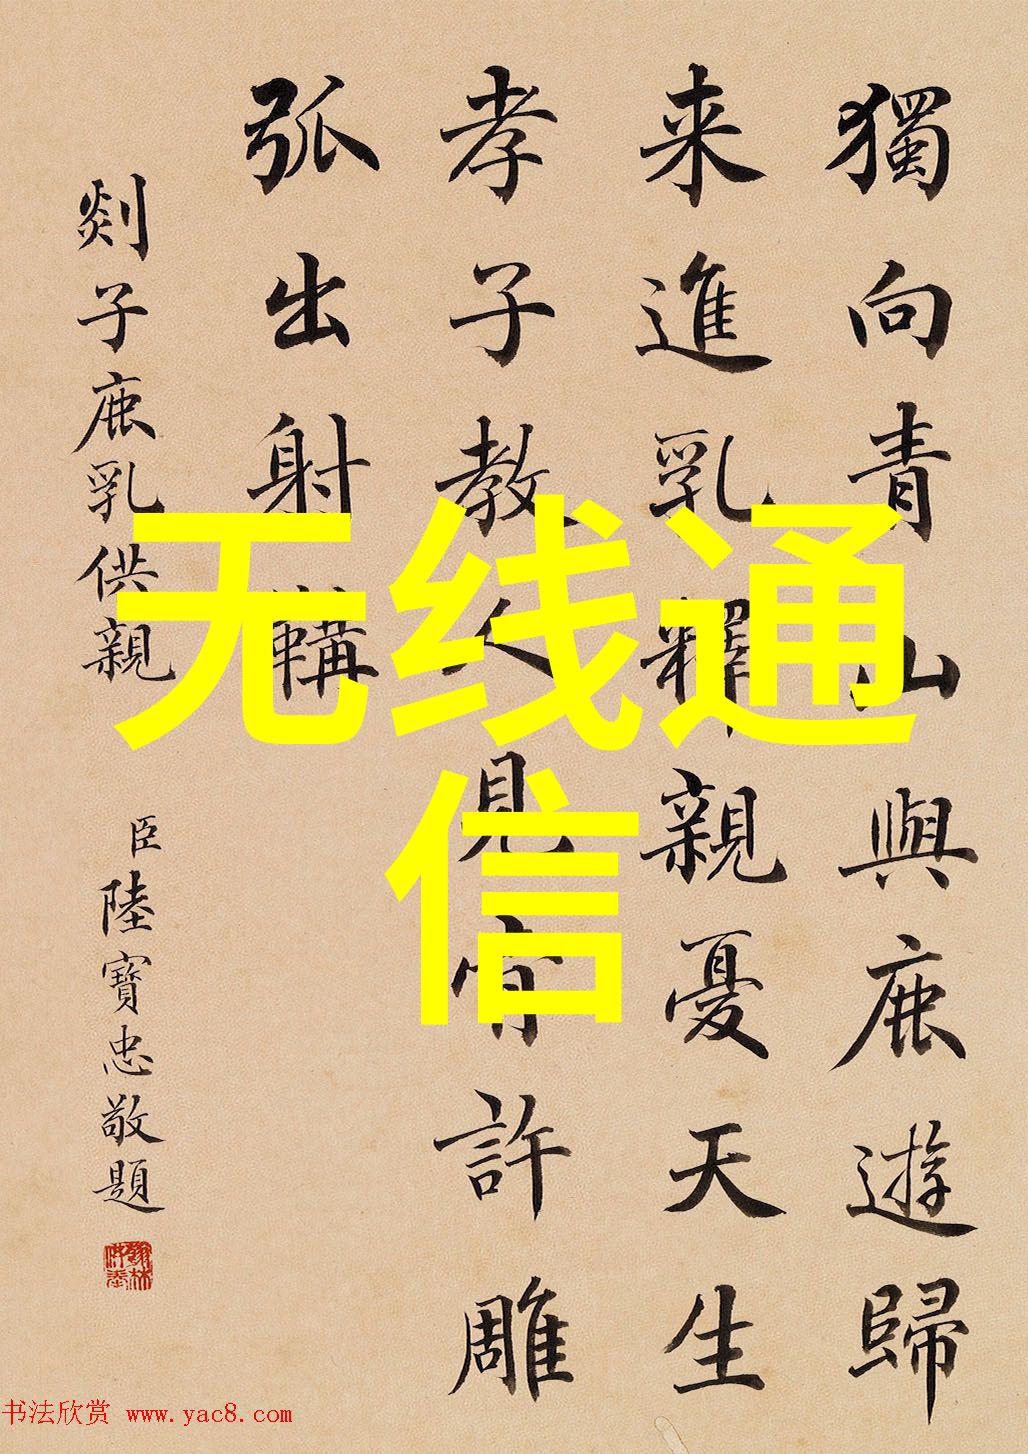 獨向青山與鹿遊歸
来進乳釋親憂天生
孝子教人見肯許雕
弧出射韝
剡子鹿乳供親
臣陸寶忠敬題
无线通
信
书法欣赏 www.yac8.com